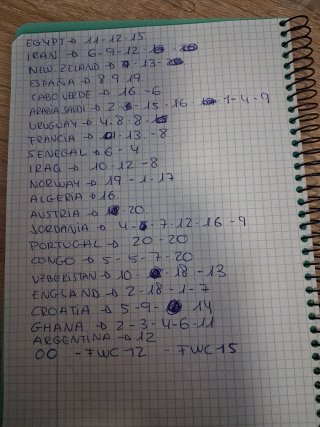 EGYPT → 11-12-15
IRAN → 6-9-12
NEW ZELAND → 13-
ESPAÑA → 8 9 19
CABO VERDE → 16 -6
ARABIA SAUDI → 2 - 15 - 16 - 1-4-9
URUGUAY → 4-8-8
FRANCIA → 13.-8
SENEGAL → 6-4
IRAQ → 10.12-8
NORWAY → 19-1-17
ALGERIA → 16
AUSTRIA → 20
JORDANIA → 4- 7-12-16-9
PORTUGAL → 20-20
CONGO → 5-5-7-20
UZBEKISTAN → 10. 18-13
ENGLAND → 2-18-1-7
CROATIA → 5-9- 14
GHANA → 2-3-4-6-11
ARGENTINA → 12
00 - FWC 12 - FWC 15